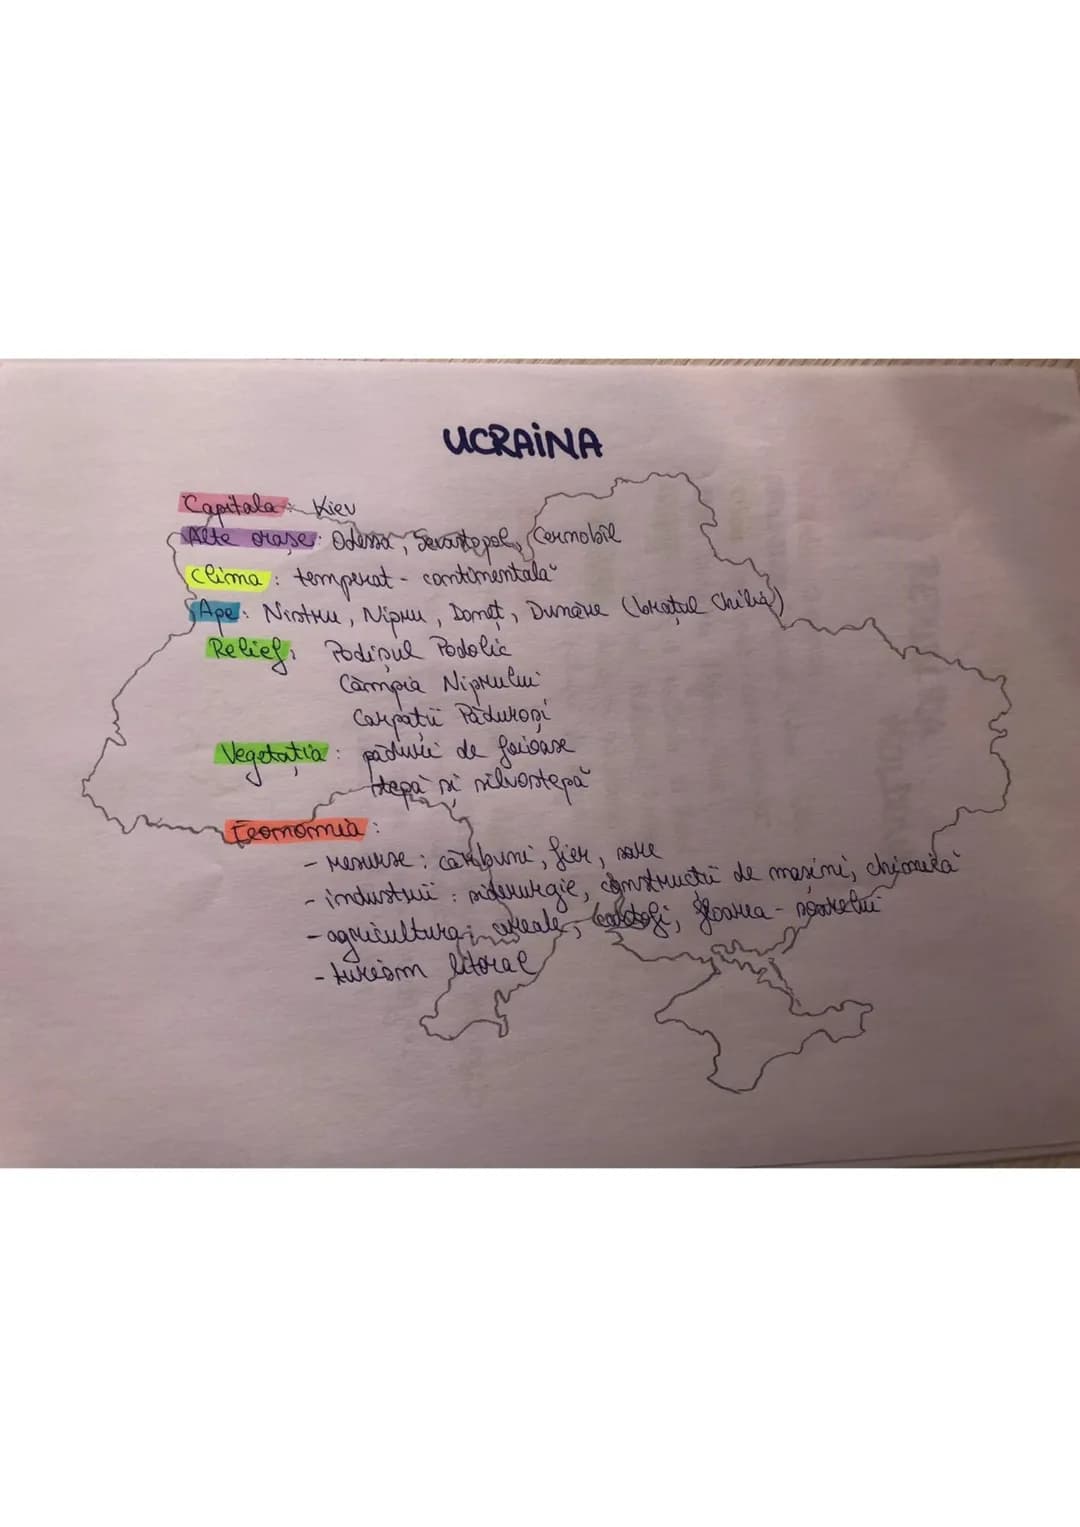 UCRAINA
Capitala: Kiev
Alte orașe: Odessa, Sevastopol, Cernobîl
Clima: temperat - continentală
Ape: Nistru, Nipru, Doneț, Dunăre (brațul Chilia)
Relief: Podișul Podolic
Câmpia Niprului
Carpații Păduroși
Vegetația: păduri de foioase
stepă și silvostepă
Economia:
- resurse: cărbuni, fier, sare
- industrii: siderurgie, construcții de mașini, chimică
- agricultura: cereale, cartofi, floarea-soarelui
- turism litoral